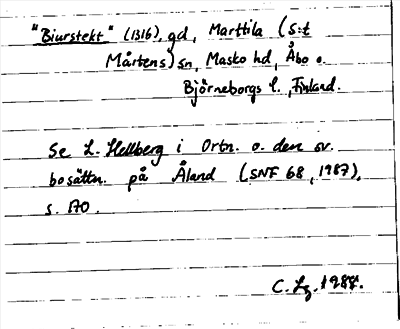 "Biurstekt" (1316), gd, Marttila (S:t
Mårtens) sn, Masko hd, Åbo o.
Björneborgs l., Finland.
Se L. Hellberg i Ortn. o. den sv.
bosättn. på Åland (SNF 68, 1987),
s. 170.
C. Lg. 1988.